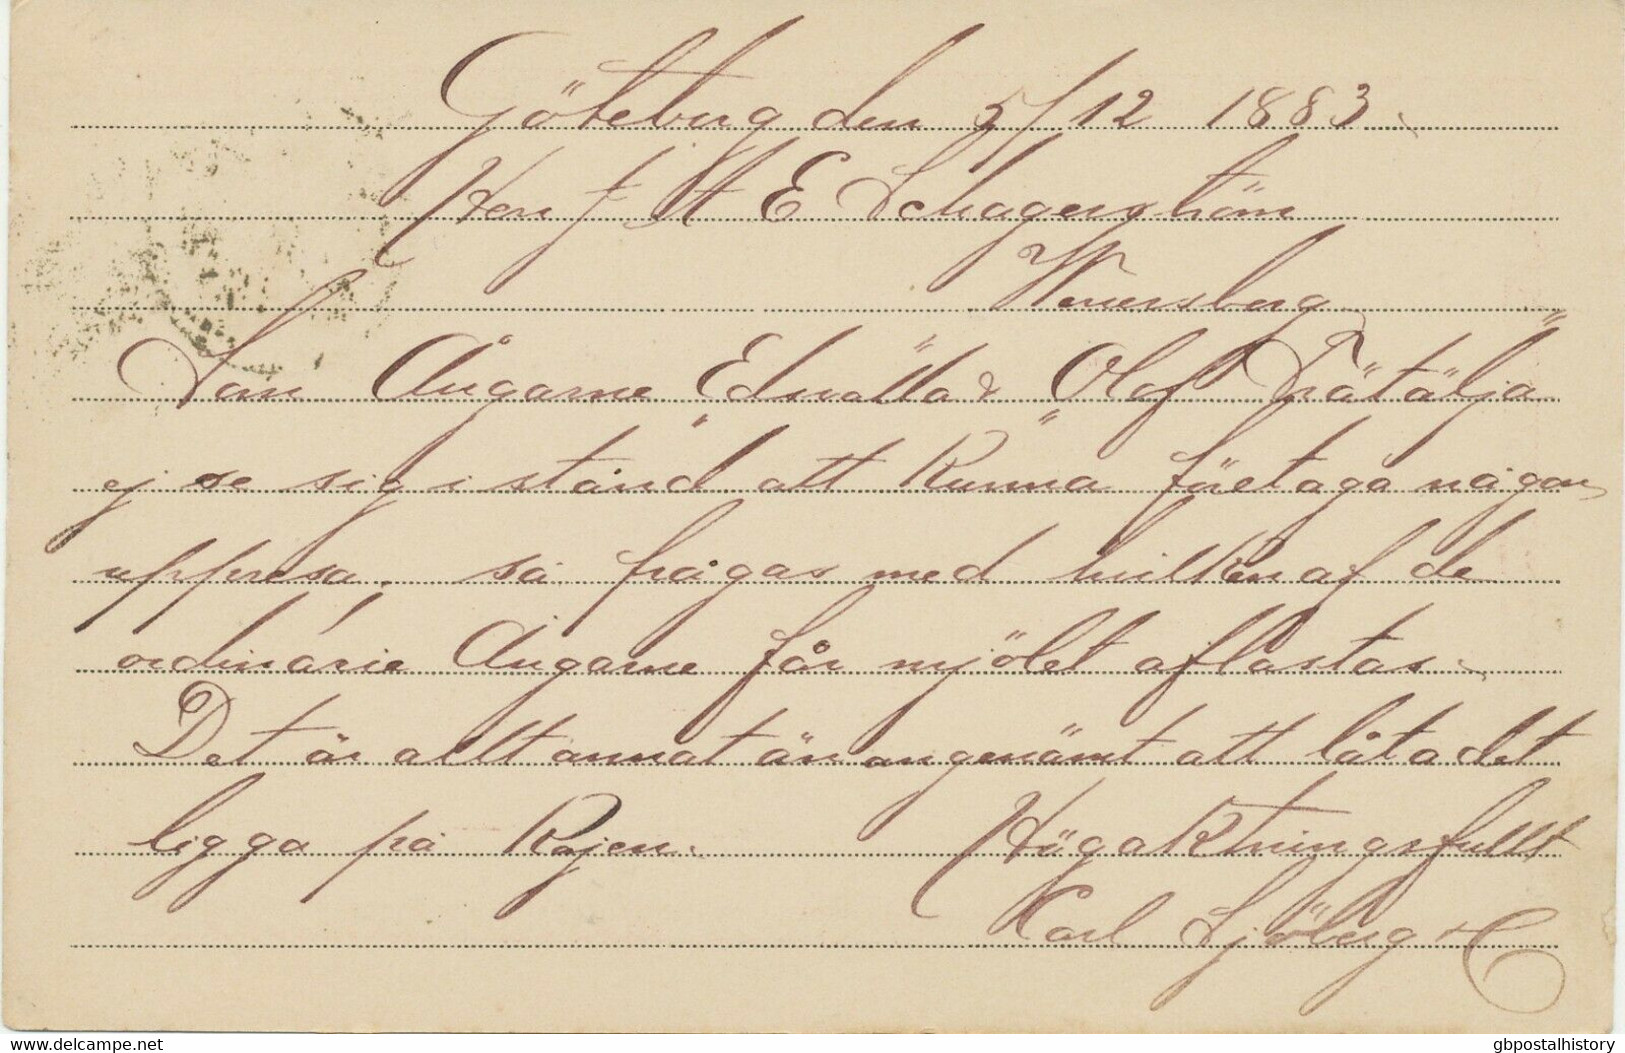 Göteborg den 5/12 1883.
Herr J A E Schagerström
Wenersborg
Som Ångarne "Edvalla" & "Olof Trätälja"
ej se sig i stånd att kunna företaga någon
uppresa, så frågas med hvilken af de
ordinarie Ångarne får mjölet aflastas.
Det är allt annat än angenämt att låta det
ligga på Kajen.
Högaktningsfullt
Karl Sjöberg & C
www.delcampe.net
gbpostalhistory